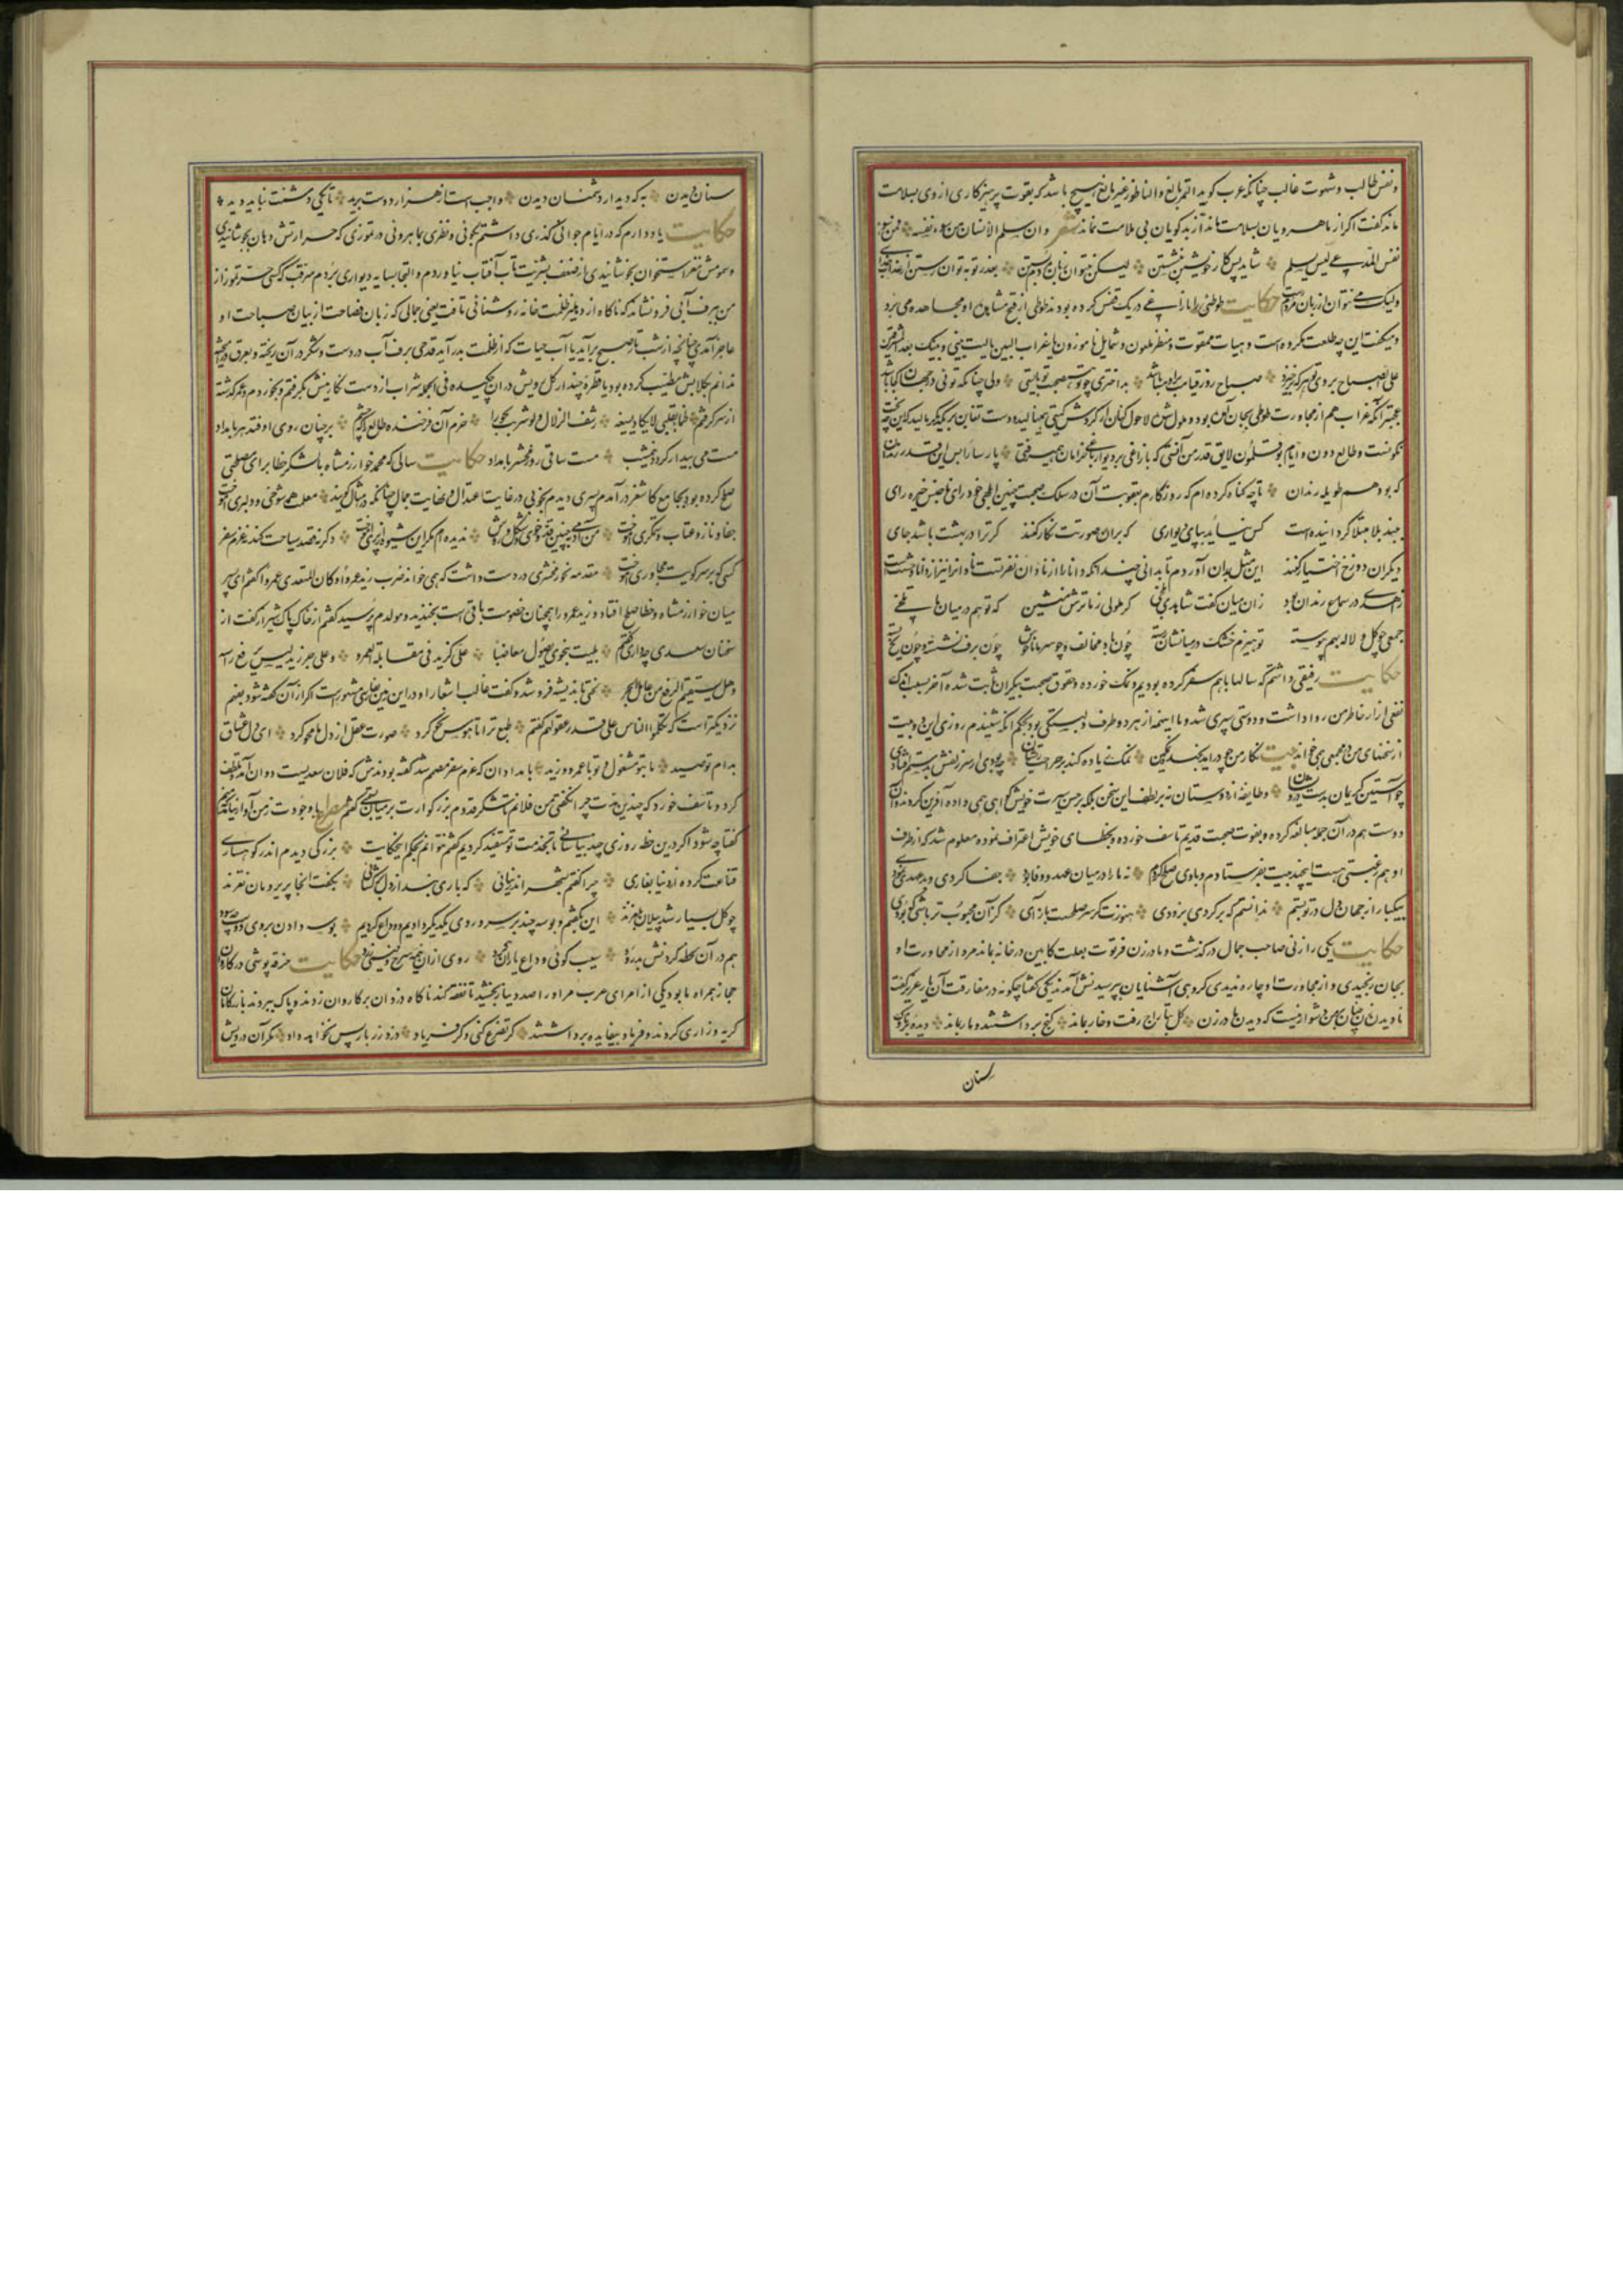 و نفس طالب و شهوت غالب چنانکه عرب کوید التمر یانع والناطور غیر مانع هیچ باشد که بقوت پرهیزکاری از وی بسلامت
ماند کفت اکر از ماهرویان بسلامت ماند از بدکویان بی ملامت نماند شعر و ان سلم الانسان من سوء نفسه فمن سوء
ظن المدعی لیس یسلم شاید پس کار خویشتن بنشستن لیکن نتوان زبان مردم بستن
ولیک می نتوان از زبان مردم رست حکایت طوطئی را با زاغی در یک قفس کرده بودند طوطی از قبح مشاهده او مجاهده می برد
و میکفت این چه طلعت مکروه است و هیات ممقوت و منظر ملعون و شمایل ناموزون یا غراب البین یا لیت بینی و بینک بعد المشرقین
علی الصباح بروی تو هر که برخیزد صباح روز قیامت برو مسا باشد بد اختری چو تو در صحبت تو بایستی ولی چنانکه توئی در جهان کجا باشد
عجبتر آنکه غراب هم از مجاورت طوطی بجان آمده بود و ملول شده لاحول کنان از کردش کیتی همی نالید و دست تغابن بر یکدیکر مالید که این چه بخت
نکونست و طالع دون و ایام بوقلمون لایق قدر من آنستی که با زاغی بر دیوار باغی خرامان همیرفتی پارسا را بس این قدر زندان
که بود هم طویله رندان تا چه کناه کرده ام که روزکارم بعقوبت آن در سلک صحبت چنین ابلهی خودرای ناجنس خیره رای
بچنین بند بلا مبتلا کردانیده است کس نیاید بپای دیواری که بران صورتت نکار کنند کر ترا در بهشت باشد جای
دیکران دوزخ اختیار کنند این مثل بدان آوردم تا بدانی چندانکه دانا را از نادان نفرتست نادانرا نیز از دانا وحشت است
زاهدی در سماع رندان بود زان میان کفت شاهدی بلخی کر ملولی ز ما ترش منشین که تو هم در میان ما تلخی
جمعی چو کل و لاله بهم پیوسته تو هیزم خشک در میانشان رسته چون باد مخالف و چو سرما ناخوش چون برف نشسته و چون یخ بسته
حکایت رفیقی داشتم که سالها باهم سفر کرده بودیم و نمک خورده و حقوق صحبت بیکران ثابت شده آخر بسبب اندک
نفعی آزار خاطر من روا داشت و دوستی سپری شد و با اینهمه از هر دو طرف دلبستکی بود بحکم انکه شنیدم روزی این دو بیت
از سخنهای من در مجمعی همی خواند بیت نکار من چو دراید بخنده نمکین نمک زیاده کند بر جراحت ریشان چه بودی ار سر زلفش بدستم افتادی
چو آستین کریمان بدست درویشان و طایفه از دوستان نه بر لطف این سخن بلکه بر حسن سیرت خویش کواهی همی داده آفرین کرده و آن
دوست هم در آن جمله مبالغه کرده و بفوت صحبت قدیم تاسف خورده و بخطای خویش اعتراف نموده معلوم شد که از طرف
او هم رغبتی هست این چند بیت بفرستادم و باوی صلح کردم نه ما را در میان عهد و وفا بود جفا کردی و بدعهدی نمودی
بیکبار از جهان دل در تو بستم ندانستم که برکردی بزودی هنوزت کر سر صلحست بازآی کز آن محبوب تر باشی که بودی
حکایت یکی را زنی صاحب جمال در کذشت و مادر زن فرتوت بعلت کابین در خانه بماند مرد از محاورت او
بجان رنجیدی و از مجاورت او چاره ندیدی کروهی آشنایان بپرسیدنش آمدند یکی کفتا چکونه در مفارقت آن یار عزیز کفت
نادیدن زن چنان بر من دشوار نیست که دیدن مادر زن کل بتاراج رفت و خار بماند کنج برداشتند و مار بماند دیده بر تارک
سنان
سنان دیدن به که دیدار دشمنان دیدن واجبست از هزار دوست برید تا یکی دشمنت نباید دید
حکایت یاد دارم که در ایام جوانی کذری داشتم بکوئی و نظری با ماهروئی در تموزی که حرارتش دهان بخوشانیدی
و سمومش مغز استخوان بجوشانیدی از ضعف بشریت تاب آفتاب نیاوردم و التجا بسایه دیواری بردم مترقب که کسی حر تموز از
من ببرف آبی فرو نشاند که ناکاه از دهلیز ظلمت خانه روشنائی تافت یعنی جمالی که زبان فصاحت از بیان صباحت او
عاجز آمدی چنانچه از شب تار صبح برآید یا آب حیات که از ظلمت بدر آید قدحی برف آب در دست و شکر در آن ریخته و بعرق برآمیخته
ندانم بکلابش مطیب کرده بود یا قطره چند از کل رویش در ان چکیده فی الجمله شراب از دست نکارینش برکرفتم و بخوردم و عمر کذشته
از سر کرفتم ظما بقلبی لایکاد یسیغه رشف الزلال ولو شربت بحورا خرم آن فرخنده طالع را که چشم بر چنان روی اوفتد هر بامداد
مست می بیدار کردد نیم شب مست ساقی روز محشر بامداد حکایت سالی که محمد خوارزمشاه با لشکر خطا برای مصلحتی
صلح کرده بود بجامع کاشغر درآمدم پسری دیدم بخوبی در غایت اعتدال و نهایت جمال چنانکه در مثال کویند معلمت همه شوخی و دلبری آموخت
جفا و ناز و عتاب و ستمکری آموخت من آدمی بچنین قد و خوی و شکل و روش ندیده ام مکر این شیوه از پری آموخت دکر نه قصد سیاحت کند نه عزم سفر
کسی که بر سر کویت مجاوری آموخت مقدمه نحو زمخشری در دست داشت و همی خواند ضرب زید عمروا و کان المتعدی عمروا کفتم ای پسر
میان خوارزمشاه و خطا صلح افتاد و زید و عمرو را همچنان خصومت باقی است بخندید و مولدم پرسید کفتم از خاک پاک شیراز کفت از
سخنان سعدی چه داری کفتم بلیت بنحوی یصول مغاضبا علی کزید فی مقابلة العمرو و علی جر زید لیس یرفع راسه
وهل یستقیم الرفع من عامل الجر لختی باندیشه فرو شد و کفت غالب اشعار او در این زمین بزبان پارسی مشهورست اکر از آن کفته شود بفهم
نزدیکتر است که تکلموا الناس علی قدر عقولهم کفتم طبع ترا تا هوس نحو کرد صورت عقل از دل ما محو کرد ای دل عشاق
بدام تو صید ما بتو مشغول و تو با عمرو و زید بامدادان که عزم سفر مصمم شد کفته بودندش که فلان سعدیست دوان آمد و تلطف
کرد و تاسف خورد که چندین مدت چرا نکفتی که من فلانم تا شکر قدوم بزرکوارت بر میان بستمی کفتم مصراع با وجودت ز من آواز نیاید که منم
کفتا چه شود اکر درین خطه روزی چند بیاسائی تا بخدمت تو مستفید کردیم کفتم نتوانم بحکم این حکایت بزرکی دیدم اندر کوهساری
قناعت کرده از دنیا بغاری چرا کفتم بشهر اندر نیائی که باری بند از دل برکشائی بکفت آنجا پریرویان نغزند
چو کل بسیار شد پیلان بلغزند این بکفتم و بوسه چند بر سر و روی یکدیکر دادیم و وداع کردیم بوسه دادن بروی دوست چه سود
هم در آن لحظه کردنش بدرود سیب کوئی وداع یاران کرد روی ازان نیمه سرخ و زین سو زرد حکایت خرقه پوشی در کاروان
حجاز همراه ما بود یکی از امرای عرب مر او را صد دینار بخشید تا نفقه کند ناکاه دزدان بر کاروان زدند و پاک ببردند بازرکانان
کریه و زاری کردند و فریاد بیفایده برداشتند کر تضرع کنی و کر فریاد دزد زر بازپس نخواهد داد مکر آن درویش